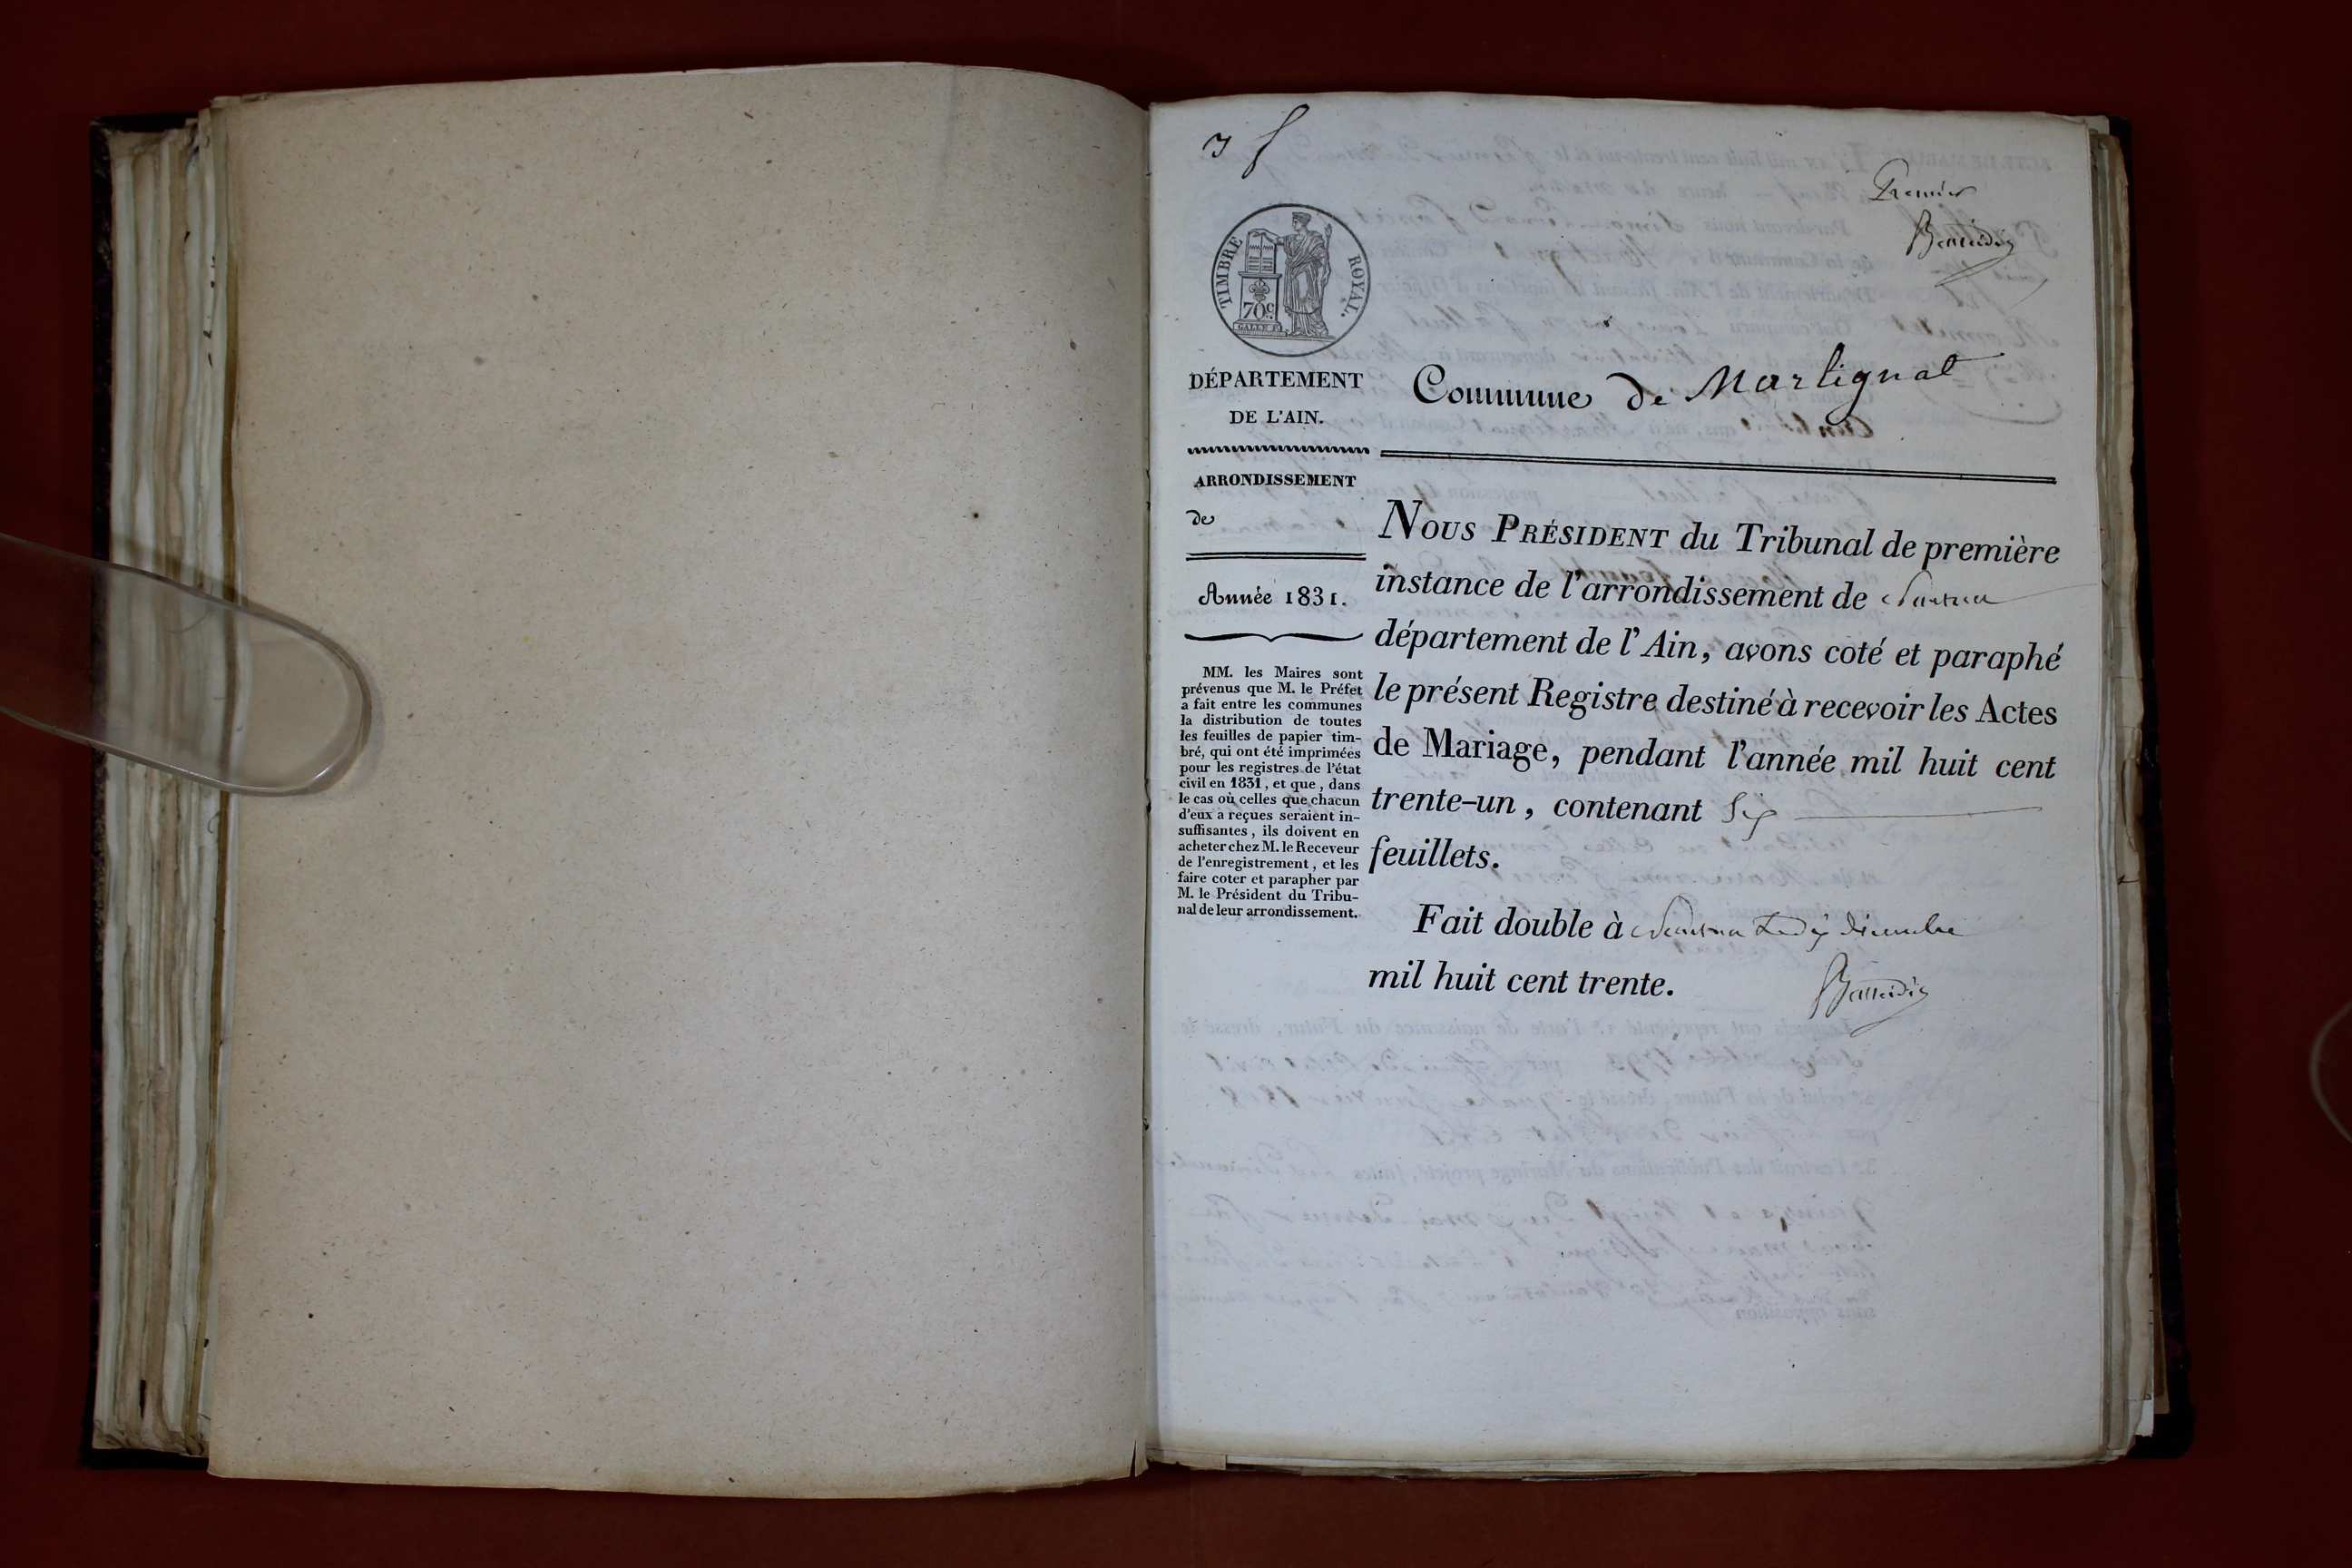 Premier
TIMBRE ROYAL.
70 C.
GALLE F.
DÉPARTEMENT
DE L'AIN.
Commune de Martignat
ARRONDISSEMENT
de
Année 1831.
MM. les Maires sont
prévenus que M. le Préfet
a fait entre les communes
la distribution de toutes
les feuilles de papier tim-
bré, qui ont été imprimées
pour les registres de l'état
civil en 1831, et que, dans
le cas où celles que chacun
d'eux a reçues seraient in-
suffisantes, ils doivent en
acheter chez M. le Receveur
de l'enregistrement, et les
faire coter et parapher par
M. le Président du Tribu-
nal de leur arrondissement.
NOUS PRÉSIDENT du Tribunal de première
instance de l'arrondissement de Nantua
département de l'Ain, avons coté et paraphé
le présent Registre destiné à recevoir les Actes
de Mariage, pendant l'année mil huit cent
trente-un, contenant Six
feuillets.
Fait double à Nantua le dix décembre
mil huit cent trente.